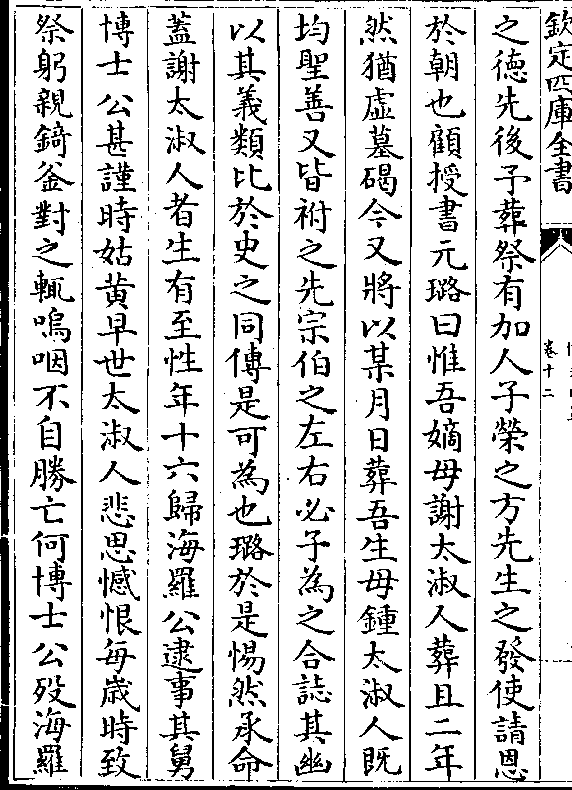 欽定四庫全書
卷十二
之德先後予葬祭有加人子榮之方先生之發使請恩
於朝也顧授書元璐曰惟吾嫡母謝太淑人葬且二年
然猶虛墓碣今又將以某月日葬吾生母鍾太淑人既
均聖善又皆祔之先宗伯之左右必子為之合誌其幽
以其義類比於史之同傳是可為也璐於是惕然承命
蓋謝太淑人者生有至性年十六歸海羅公逮事其舅
博士公甚謹時姑黄早世太淑人悲思憾恨每歲時致
祭躬親錡釜對之輒嗚咽不自勝亡何博士公歿海羅